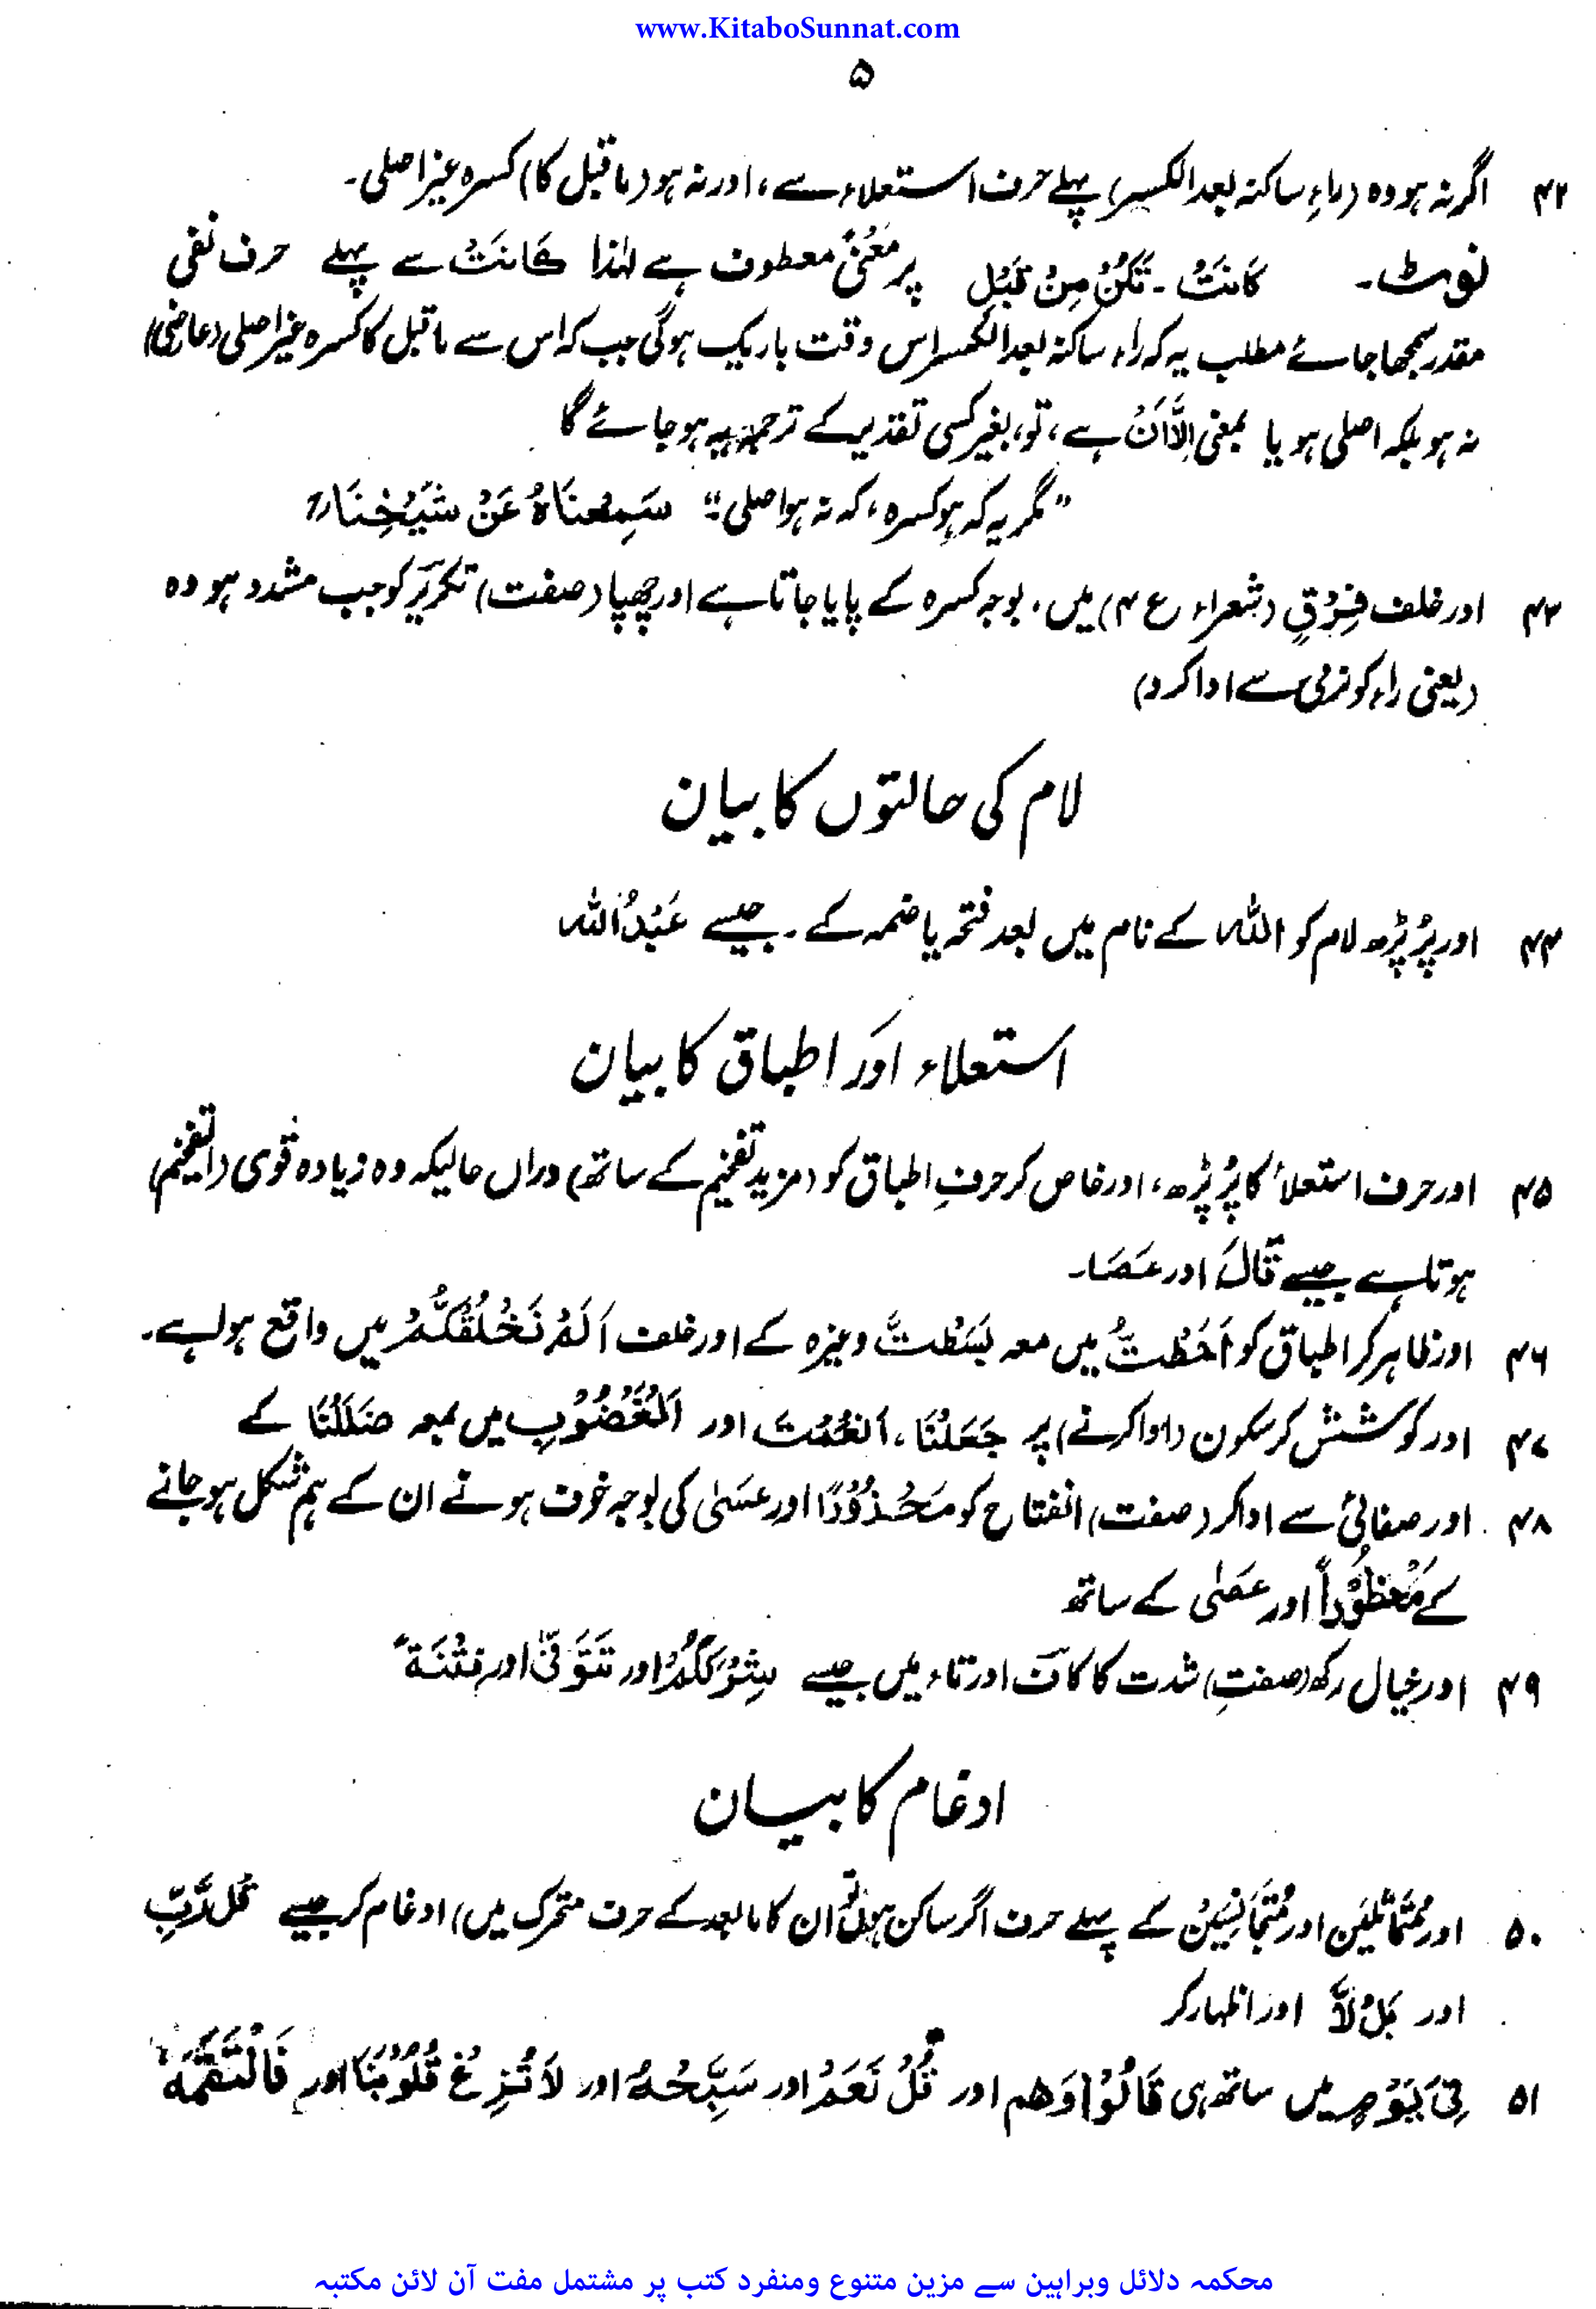 www.KitaboSunnat.com
۵
۴۲ اگر نہ ہو وہ (راءِ ساکنہ بعد الکسر) پہلے حرف استعلاء سے، اور نہ ہو (ماقبل کا) کسرہ غیر اصلی۔
نوٹ۔ کَانَتْ ۔ تَکُنْ مِنْ قَبْلِ پر مَعْنًی معطوف ہے لہٰذا کَانَتْ سے پہلے حرف نفی
مقدر سمجھا جائے مطلب یہ کہ راء ساکنہ بعد الکسر اس وقت باریک ہوگی جب کہ اس سے ماقبل کا کسرہ غیر اصلی (عارضی)
نہ ہو بلکہ اصلی ہو یا بمعنی اِلَّا اَنْ ہے، تو، بغیر کسی تقدیر کے ترجمہ یہ ہو جائے گا
”مگر یہ کہ ہو کسرہ، کہ نہ ہو اصلی“ سَمِعْنَاہُ عَنْ شَیْخِنَا
۴۳ اور خلف فِرْقٍ (شعراء ع ۴) میں، بوجہ کسرہ کے پایا جاتا ہے اور چھپا (صفت) تکریر کو جب مشدد ہو وہ
(یعنی راء کو نرمی سے ادا کرو)
لام کی حالتوں کا بیان
۴۴ اور پُر پڑھ لام کو اللہ کے نام میں بعد فتحہ یا ضمہ کے ۔ جیسے عَبْدُ اللہ
استعلاء اور اطباق کا بیان
۴۵ اور حرف استعلاء کا پُر پڑھ، اور خاص کر حرفِ اطباق کو (مزید تفخیم کے ساتھ) دراں حالیکہ وہ زیادہ قوی (التفخیم)
ہوتا ہے جیسے قَالَ اور عَصَا۔
۴۶ اور ظاہر کر اطباق کو اَحَطْتُّ میں معہ بَسَطْتَّ وغیرہ کے اور خلف اَلَمْ نَخْلُقْکُّمْ میں واقع ہوا ہے۔
۴۷ اور کوشش کر سکون (ادا کرنے) پر جَعَلْنَا، اَنْعَمْتَ اور اَلْمَغْضُوْبِ میں بمعہ ضَلَلْنَا کے
۴۸ اور صفائی سے ادا کر (صفت) انفتاح کو مَحْذُوْرًا اور عَسٰی کی بوجہ خوف ہونے ان کے ہم شکل ہو جانے
کے مَحْظُوْرًا اور عَصٰی کے ساتھ
۴۹ اور خیال رکھ (صفتِ) شدت کا کاف اور تاء میں جیسے بِشِرْکِکُمْ اور تَتَوَفّٰی اور فِتْنَۃً
ادغام کا بیان
۵۰ اور مُتَمَاثِلَیْن اور مُتَجَانِسَیْنْ کے پہلے حرف اگر ساکن ہوں تو ان کا مابعد کے حرف متحرک میں) ادغام کر جیسے قُل رَّبِّ
اور بَلْ لَّا اور اظہار کر
۵۱ فِیْ یَوْمٍ میں ساتھ ہی قَالُوْا وَھُم اور قُلْ نَعَمْ اور سَبِّحْہُ اور لَا تُزِغْ قُلُوْبَنَا اور فَالْتَقَمَہُ
محکمہ دلائل وبراہین سے مزین متنوع ومنفرد کتب پر مشتمل مفت آن لائن مکتبہ